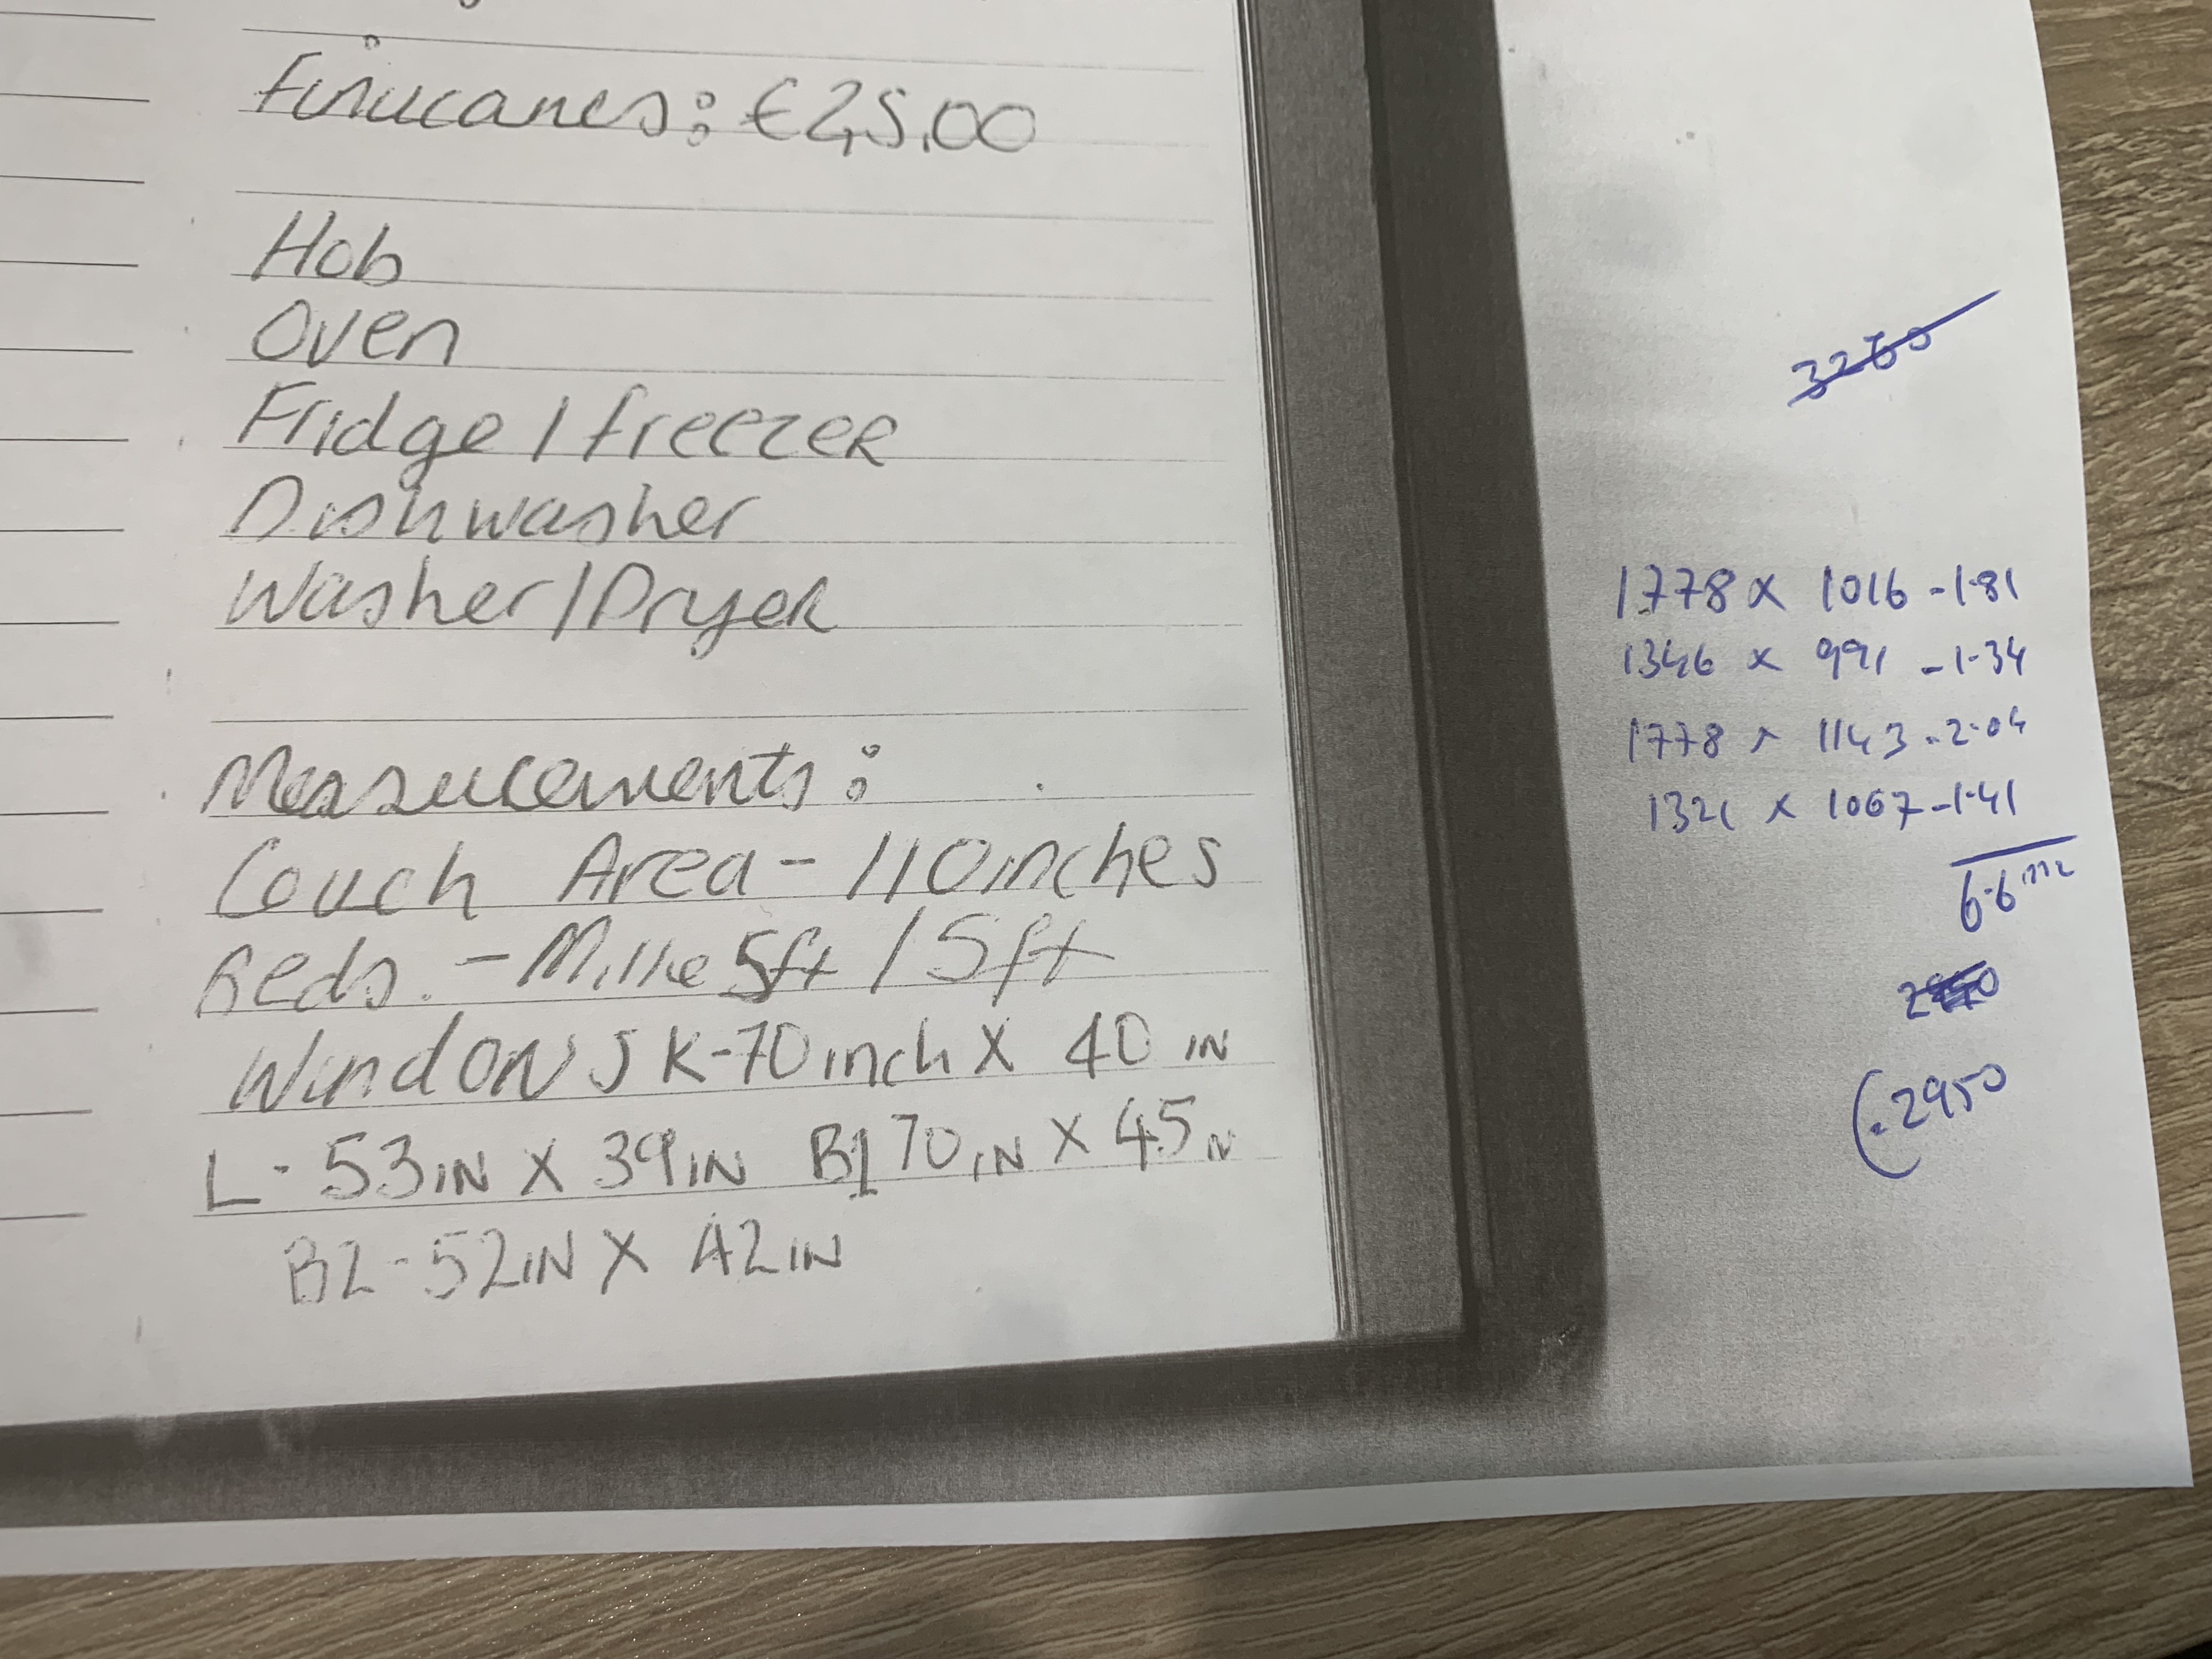 Finucanes: €25.00
Hob
Oven
Fridge/freezer
Dishwasher
Washer/Dryer
Measurements:
Couch Area - 110inches
Beds. - Millie 5ft / 5ft
Windows K-70inch X 40 IN
L - 53IN X 39IN B1 70IN X 45IN
B2 - 52IN X 42IN
1778 x 1016 - 1.81
1346 x 991 - 1.34
1778 x 1143 - 2.04
1321 x 1067 - 1.41
6.6m2
2950